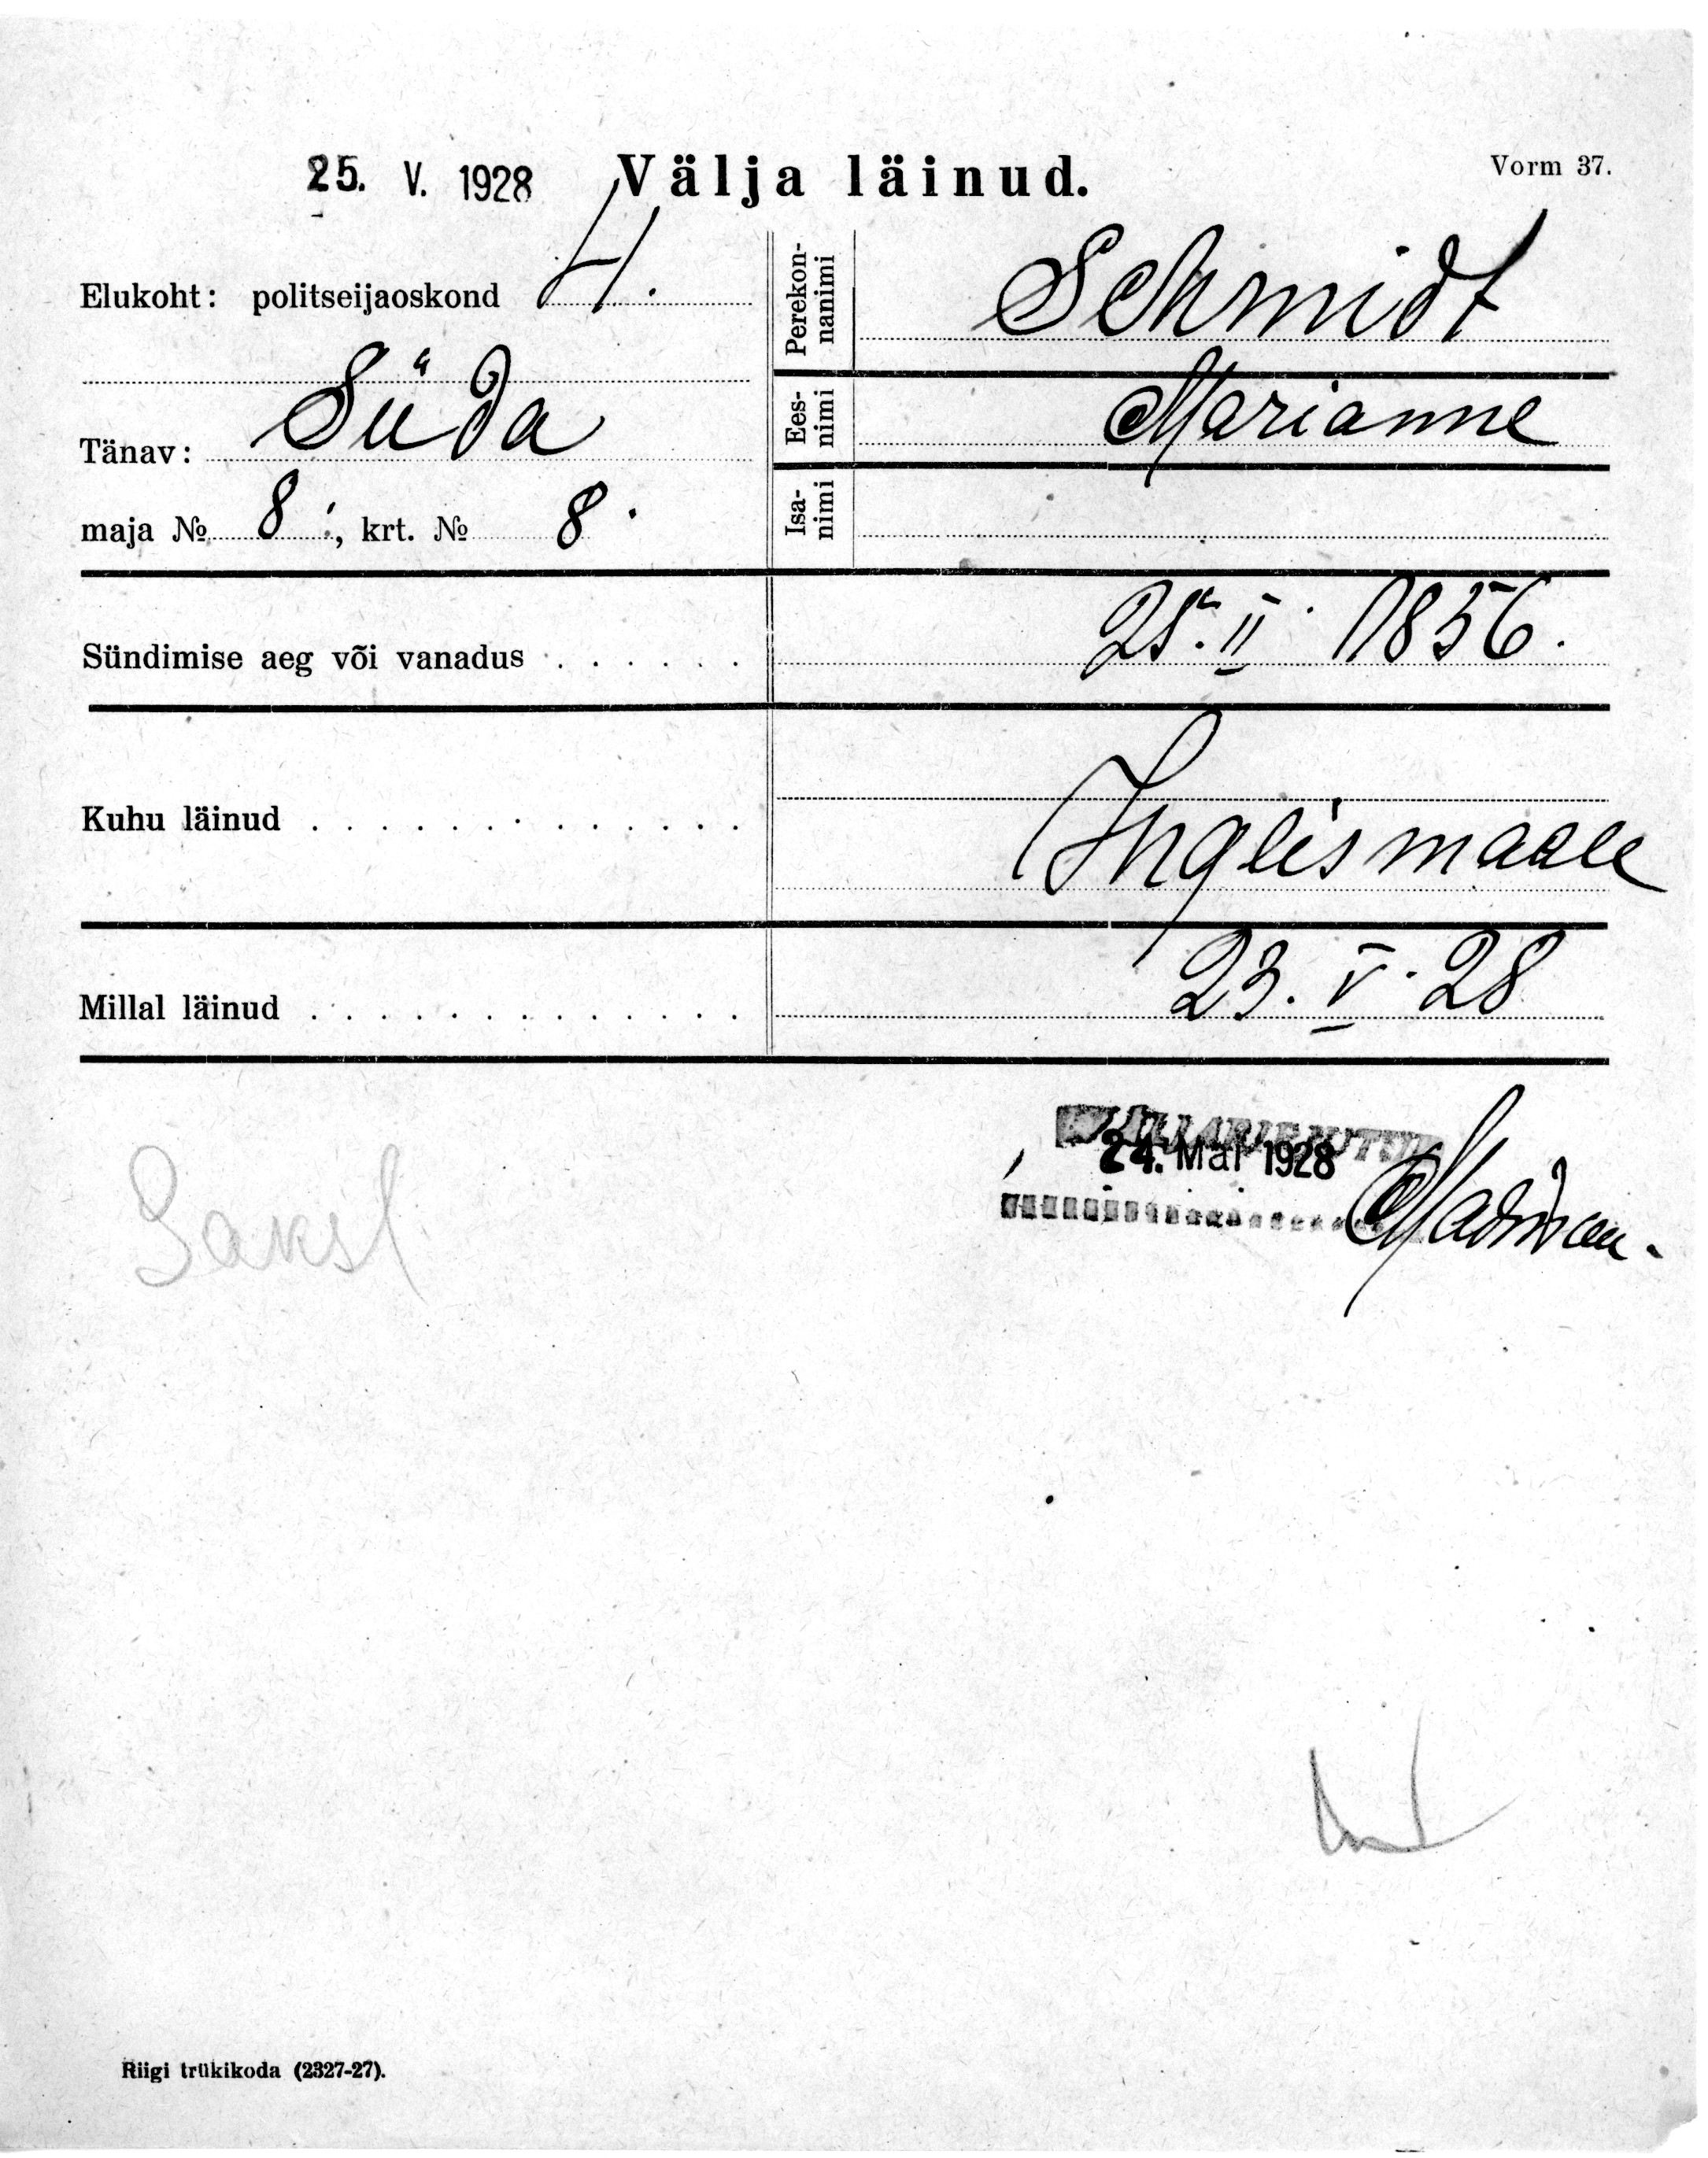 25. V. 1928 Välja läinud. Vorm 37.
Elukoht: politseijaoskond 4.
Tänav: Süda
maja № 8 ., krt. № 8.
Perekon-
nanimi Schmidt
Ees-
nimi Marianne
Isa-
nimi
Sündimise aeg või vanadus . . . . . . 25. II. 1856.
Kuhu läinud . . . . . . . . . . . . . Inglismaale
Millal läinud . . . . . . . . . . . . . 23. V. 28
24. Mai 1928
Saksl
Riigi trükikoda (2327-27).